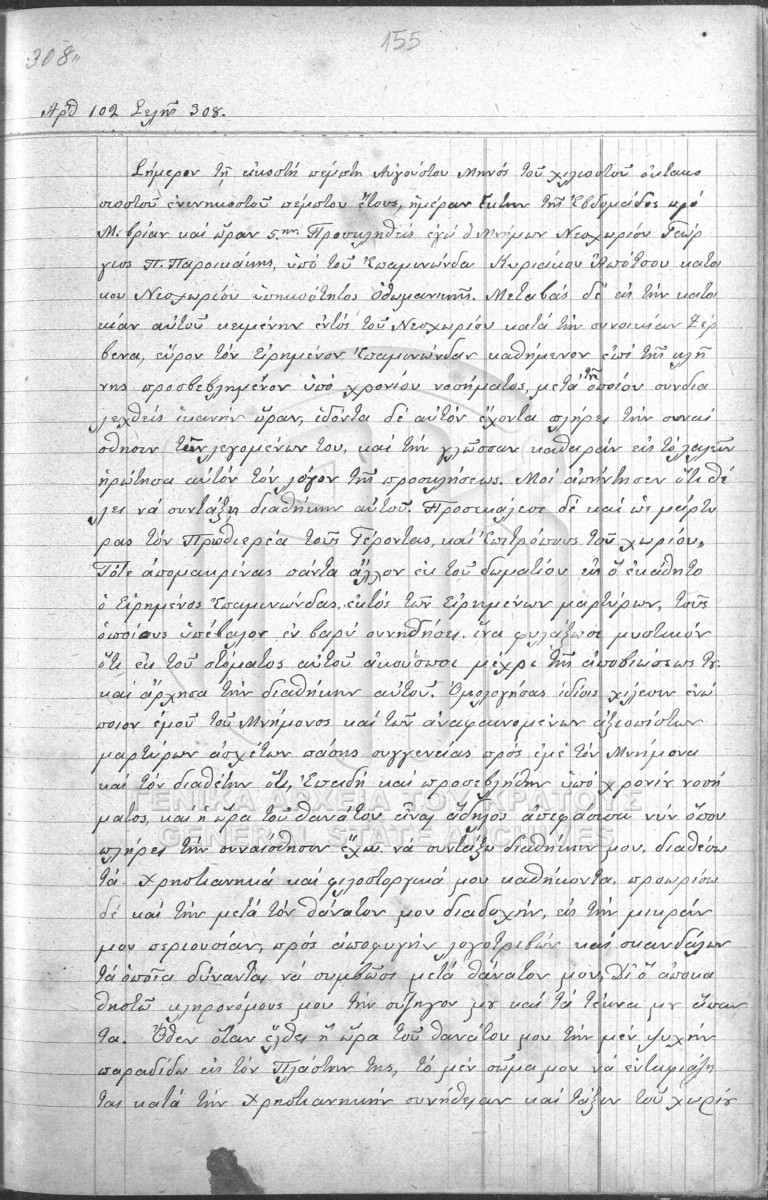 155
308"
Αρθ 102 Σελὶς 308.
Σήμερον τῇ εἰκοστῇ πέμπτῃ Αὐγούστου Μηνός τοῦ χιλιοστοῦ ὀκτακο
σιοστοῦ ἐνενηκοστοῦ πέμπτου ἔτους, ἡμέραν ἕκτην τῆς Ἑβδομάδος πρό
Μεβρίαν καί ὥραν 5ην Προσκληθείς ἐγώ ὁ Μνήμων Νεοχωρίου Γεώρ
γιος Π. Παροικάκης, ὑπό τοῦ Ἐπαμινώνδα Κυριάκου Ἀπότσου κατοί
κου Νεοχωρίου ὑπηκοότητος Ὀθωμανικῆς. Μεταβάς δέ εἰς τήν κατοι
κίαν αὐτοῦ κειμένην ἐντός τοῦ Νεοχωρίου κατά τήν συνοικίαν Ζερ
βενα, εὗρον τόν Εἰρημένον Ἐπαμινώνδαν καθήμενον ἐπί τῆς κλί
νης προσβεβλημένον ὑπό χρονίου νοσήματος, μετά τοῦ ὁποίου συνδια
λεχθείς ἱκανήν ὥραν, ἰδόντα δέ αὐτόν ἔχοντα πλήρει τήν συναί
σθησιν τῶν λεγομένων του, καί τήν γλῶσσαν καθαράν εἰς τό λαλεῖν
ἠρώτησα αὐτόν τόν λόγον τῆς προσκλήσεως. Μοί ἀπήντησεν ὅτι θέ
λει νά συντάξῃ διαθήκην αὐτοῦ. Προσεκάλεσε δέ καί ὡς μάρτυ
ρας τόν Πρωθιερέα τούς Γέροντας, καί Ἐπιτρόπους τοῦ χωρίου,
Τότε ἀπομακρίνας πάντα ἄλλον ἐκ τοῦ δωματίου εἰς ὅ ἐκάθητο
ὁ Εἰρημένος Ἐπαμινώνδας, ἐκτός τῶν Εἰρημένων μαρτύρων, τούς
ὁποίους ὑπέβαλον ἐν βαρύ συνηδήσει ἵνα φυλάξωσι μυστικόν
ὅτι ἐκ τοῦ στόματος αὐτοῦ ἀκούσωσι μέχρι τῆς ἀποβιώσεώς τȣ.
καί ἄρχησα τήν διαθήκην αὐτοῦ. Ὁμολογήσας ἰδίοις χείλεσιν ἐνώ
πιον ἐμοῦ τοῦ Μνήμονος καί τῶν ἀναφαινομένων ἀξιοπίστων
μαρτύρων ἀσχέτων πάσης συγγενείας πρός ἐμέ τόν Μνήμονα
καί τόν διαθέτην ὅτι, Ἐπειδή καί προσεβλήθην ὑπό χρονίȣ νοσή
ματος, καί ἡ ὥρα τοῦ θανάτου εἶναι ἄδηλος ἀπεφάσισα νῦν ὅπου
πλήρει τήν συναίσθησιν ἔχω νά συντάξω διαθήκην μου, διαθέσω
τά Χρηστιανηκά καί φιλοστοργικά μου καθήκοντα, προωρίσω
δέ καί τήν μετά τόν θάνατον μου διαδοχήν, εἰς τήν μικράν
μου περιουσίαν, πρός ἀποφυγήν λογοτριβῶν καί σκανδάλων
τά ὁποῖα δύνανται νά συμβῶσι μετά θάνατον μου, Δι' ὅ ἀποκα
θηστῶ κληρονόμους μου τήν σύζηγον μȣ καί τά τέκνα μȣ ἅπαν
τα. Ὅθεν ὅταν ἔλθει ἡ ὥρα τοῦ θανάτου μου τήν μέν ψυχήν
παραδίδω εἰς τόν Πλάστην της, τό μέν σῶμα μου νά ἐνταφιάζη
ται κατά τήν Χρηστιανηκήν συνήθειαν καί τάξιν τοῦ χωρίȣ
ΓΕΝΙΚΑ ΑΡΧΕΙΑ ΤΟΥ ΚΡΑΤΟΥΣ
GENERAL STATE ARCHIVES